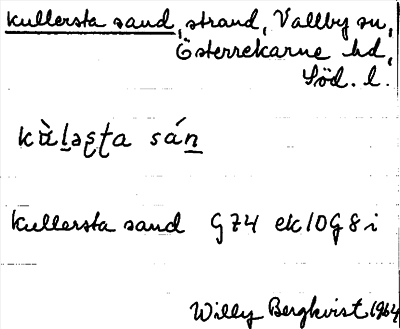 Kullersta sand, strand, Vallby sn,
Österrekarne hd,
Söd. l.
kɯ̀l̲əʂʈa sán̲
Kullersta sand G74 ek10G8i
Willy Bergkvist 1964